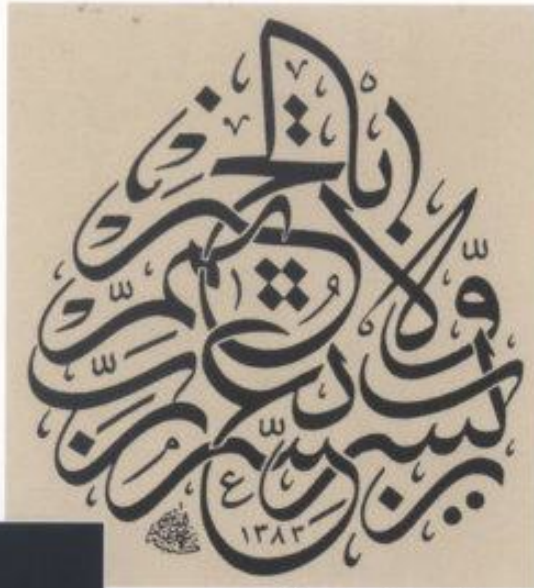 رب يسر ولا تعسر رب تمم بالخير
١٣٨٣